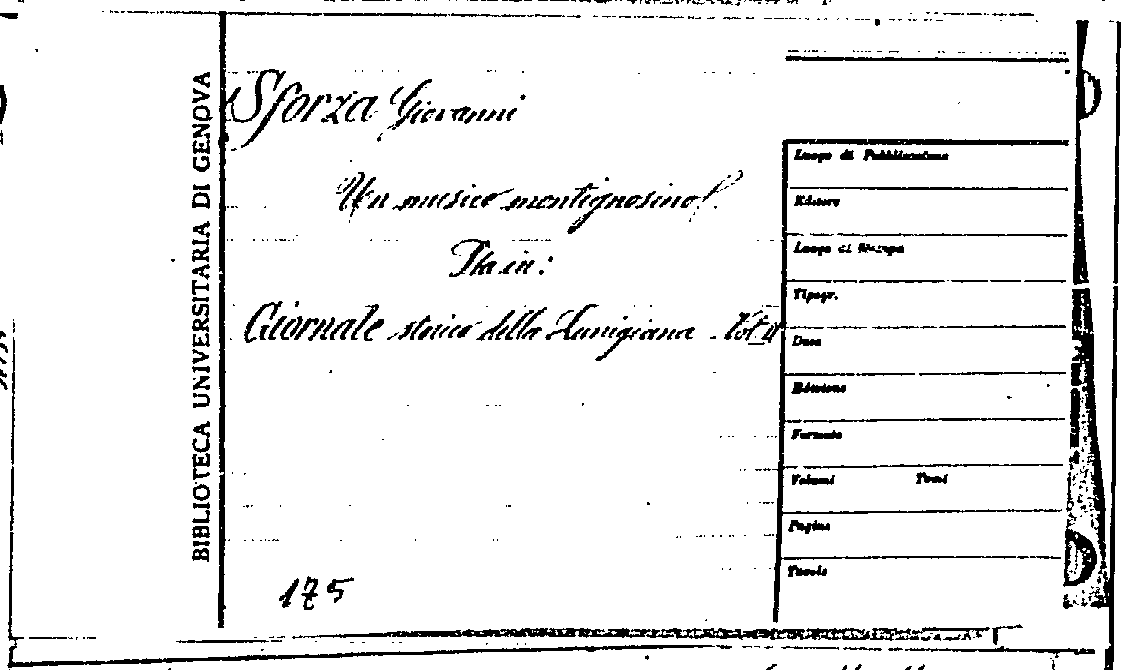 BIBLIOTECA UNIVERSITARIA DI GENOVA
Sforza Giovanni
Un musico montignosino.
Sta in:
Giornale storico della Lunigiana. Vol. II
175
Luogo di Pubblicazione
Editore
Luogo di Stampa
Tipogr.
Data
Edizione
Formato
Volumi Tomi
Pagine
Tavole